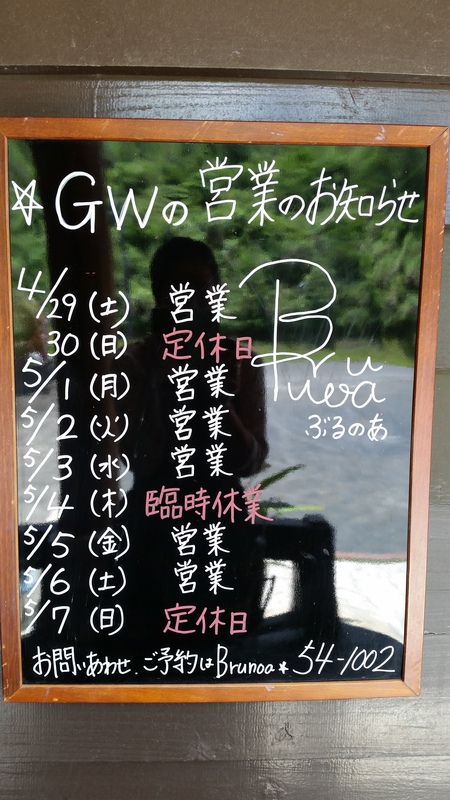 ☆GWの営業のお知らせ
4/29(土) 営業
30(日) 定休日
5/1(月) 営業
5/2(火) 営業
5/3(水) 営業
5/4(木) 臨時休業
5/5(金) 営業
5/6(土) 営業
5/7(日) 定休日
Brunoa
ぶるのあ
お問いあわせ、ご予約はBrunoa★ 54-1002